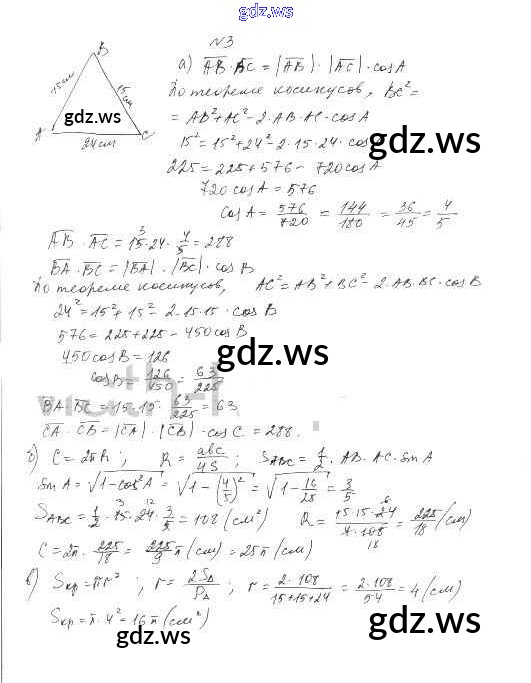 gdz.ws
N3
B
15 см
15 см
A
24 см
C
gdz.ws
gdz.ws
а) AB · BC = |AB| · |AC| · cos A
По теореме косинусов, BC² =
= AB² + AC² - 2 · AB · AC · cos A
15² = 15² + 24² - 2 · 15 · 24 · cos
225 = 225 + 576 - 720 cos A
720 cos A = 576
cos A = 576/720 = 144/180 = 36/45 = 4/5
AB · AC = 15 · 24 · 4/5 = 288
BA · BC = |BA| · |BC| · cos B
По теореме косинусов, AC² = AB² + BC² - 2 · AB · BC · cos B
24² = 15² + 15² - 2 · 15 · 15 · cos B
576 = 225 + 225 - 450 cos B
450 cos B = 126
cos B = 126/450 = 63/225
gdz.ws
gdz.ws
BA · BC = 15 · 15 · 63/225 = 63
CA · CB = |CA| · |CB| · cos C = 288.
б) C = 2πR ; R = abc/4S ; S ABC = 1/2 · AB · AC · sin A
sin A = √1 - cos²A = √1 - (4/5)² = √1 - 16/25 = 3/5
S ABC = 1/2 · 15 · 24 · 3/5 = 108 (см²) R = 15 · 15 · 24/4 · 108 = 225/18 (см)
C = 2π · 225/18 = 225/9 π (см) = 25π (см)
в) Sкр = πr² ; r = 2S∆/P∆ ; r = 2 · 108/15+15+24 = 2 · 108/54 = 4 (см)
Sкр = π · 4² = 16π (см²)
gdz.ws
gdz.ws